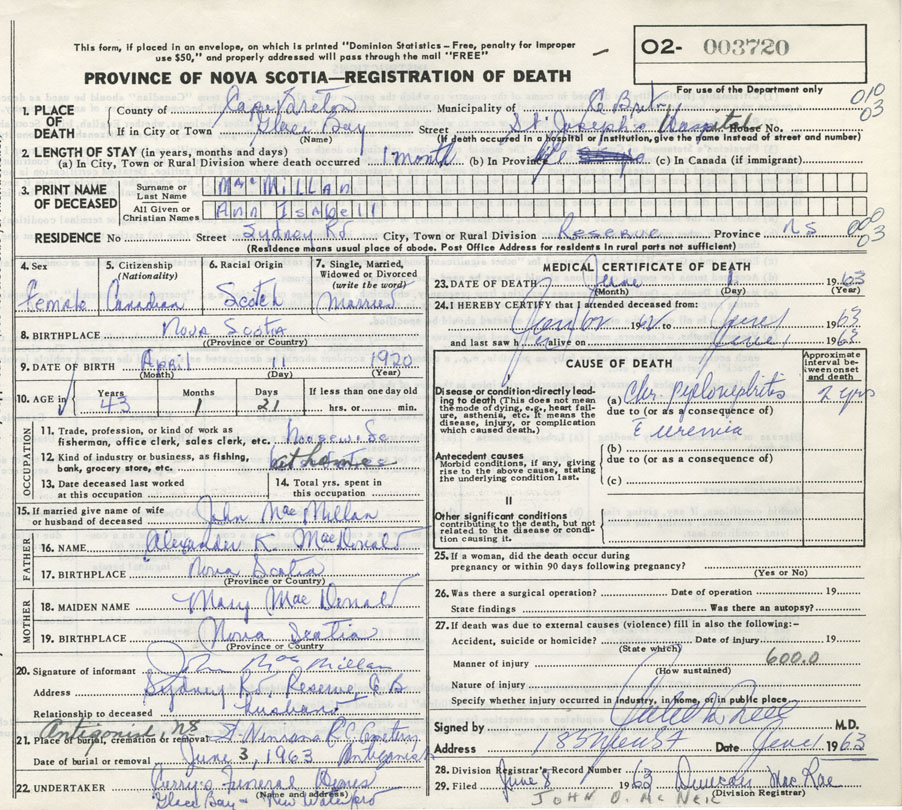 This form, if placed in an envelope, on which is printed "Dominion Statistics – Free, penalty for improper
use $50," and properly addressed will pass through the mail "FREE"
PROVINCE OF NOVA SCOTIA—REGISTRATION OF DEATH
O2- 003720
For use of the Department only
010
03
1. PLACE OF DEATH
County of Cape Breton Municipality of C Breton
If in City or Town Glace Bay Street St Joseph's Hospital House No.
(Name) (If death occurred in a hospital or institution, give the name instead of street and number)
2. LENGTH OF STAY (in years, months and days)
(a) In City, Town or Rural Division where death occurred 1 month (b) In Province life (c) In Canada (if immigrant)
3. PRINT NAME OF DECEASED
Surname or Last Name MacMillan
All Given or Christian Names Ann Isabell
RESIDENCE No Street Sydney Rd City, Town or Rural Division Reserve Province NS
000
03
(Residence means usual place of abode. Post Office Address for residents in rural parts not sufficient)
4. Sex Female
5. Citizenship (Nationality) Canadian
6. Racial Origin Scotch
7. Single, Married, Widowed or Divorced (write the word) Married
8. BIRTHPLACE Nova Scotia
(Province or Country)
9. DATE OF BIRTH April 11 1920
(Month) (Day) (Year)
10. AGE in Years 43 Months 1 Days 21 If less than one day old hrs. or min.
OCCUPATION
11. Trade, profession or kind of work as fisherman, office clerk, sales clerk, etc. Housewife
12. Kind of industry or business, as fishing, bank, grocery store, etc. at home
13. Date deceased last worked at this occupation
14. Total yrs. spent in this occupation
15. If married give name of wife or husband of deceased John MacMillan
FATHER
16. NAME Alexander K. MacDonald
17. BIRTHPLACE Nova Scotia
(Province or Country)
MOTHER
18. MAIDEN NAME Mary MacDonald
19. BIRTHPLACE Nova Scotia
(Province or Country)
20. Signature of informant John MacMillan
Address Sydney Rd Reserve, C B
Relationship to deceased husband
Antigonish, NS
21. Place of burial, cremation or removal St Ninians R C Cemetery
Date of burial or removal June 3, 1963 Antigonish
22. UNDERTAKER Curry's Funeral Homes
(Name and address)
Glace Bay – New Waterford
MEDICAL CERTIFICATE OF DEATH
23. DATE OF DEATH June 1 1963
(Month) (Day) (Year)
24. I HEREBY CERTIFY that I attended deceased from:
1962 to June 1 1963
and last saw h alive on June 1 1963
CAUSE OF DEATH
Approximate interval between onset and death
I
Disease or condition directly leading to death (This does not mean the mode of dying, e.g., heart failure, asthenia, etc. It means the disease, injury, or complication which caused death.)
(a) Chr. pyelonephritis 2 yrs
due to (or as a consequence of)
uremia
Antecedent causes
Morbid conditions, if any, giving rise to the above cause, stating the underlying condition last.
(b)
due to (or as a consequence of)
(c)
II
Other significant conditions contributing to the death, but not related to the disease or condition causing it.
25. If a woman, did the death occur during pregnancy or within 90 days following pregnancy?
(Yes or No)
26. Was there a surgical operation? Date of operation 19
State findings Was there an autopsy?
27. If death was due to external causes (violence) fill in also the following:–
Accident, suicide or homicide? Date of injury 19
(State which)
Manner of injury 600.0
(How sustained)
Nature of injury
Specify whether injury occurred in industry, in home, or in public place
Signed by M.D.
Address Date June 1 1963
28. Division Registrar's Record Number
29. Filed June 8 1963 Duncan MacRae
(Division Registrar)
JOHN D. McNEIL